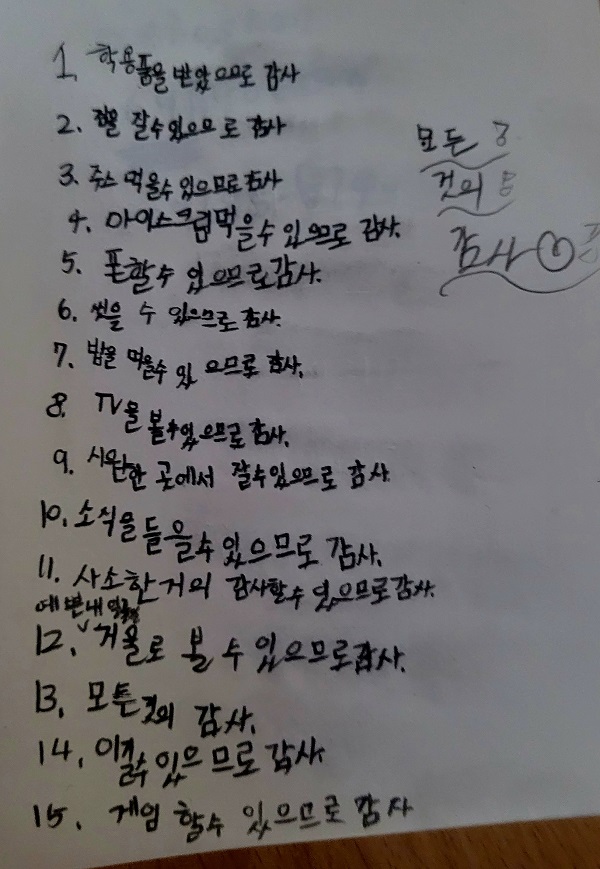 1. 학용품을 받았으므로 감사
2. 잘수있으므로 감사
3. 주스 먹을수 있으므로 감사
4. 아이스크림먹을수 있으므로 감사.
5. 폰할수 있으므로 감사.
6. 씻을 수 있으므로 감사.
7. 밥을 먹을수 있 으므로 감사.
8. TV을 볼수있으므로 감사.
9. 시원한 곳에서 잘수있으므로 감사.
10. 소식을 들을수 있으므로 감사.
11. 사소한거의 감사할수 있으므로감사.
12. 거울로 볼 수 있으므로감사.
13. 모든것의 감사.
14. 이길수 있으므로 감사
15. 게임 할수 있으므로 감사
모든
것의
감사